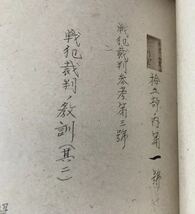 拾五部ノ内第一號
戦犯裁判参考第三號
戦犯裁判ノ教訓（其二）